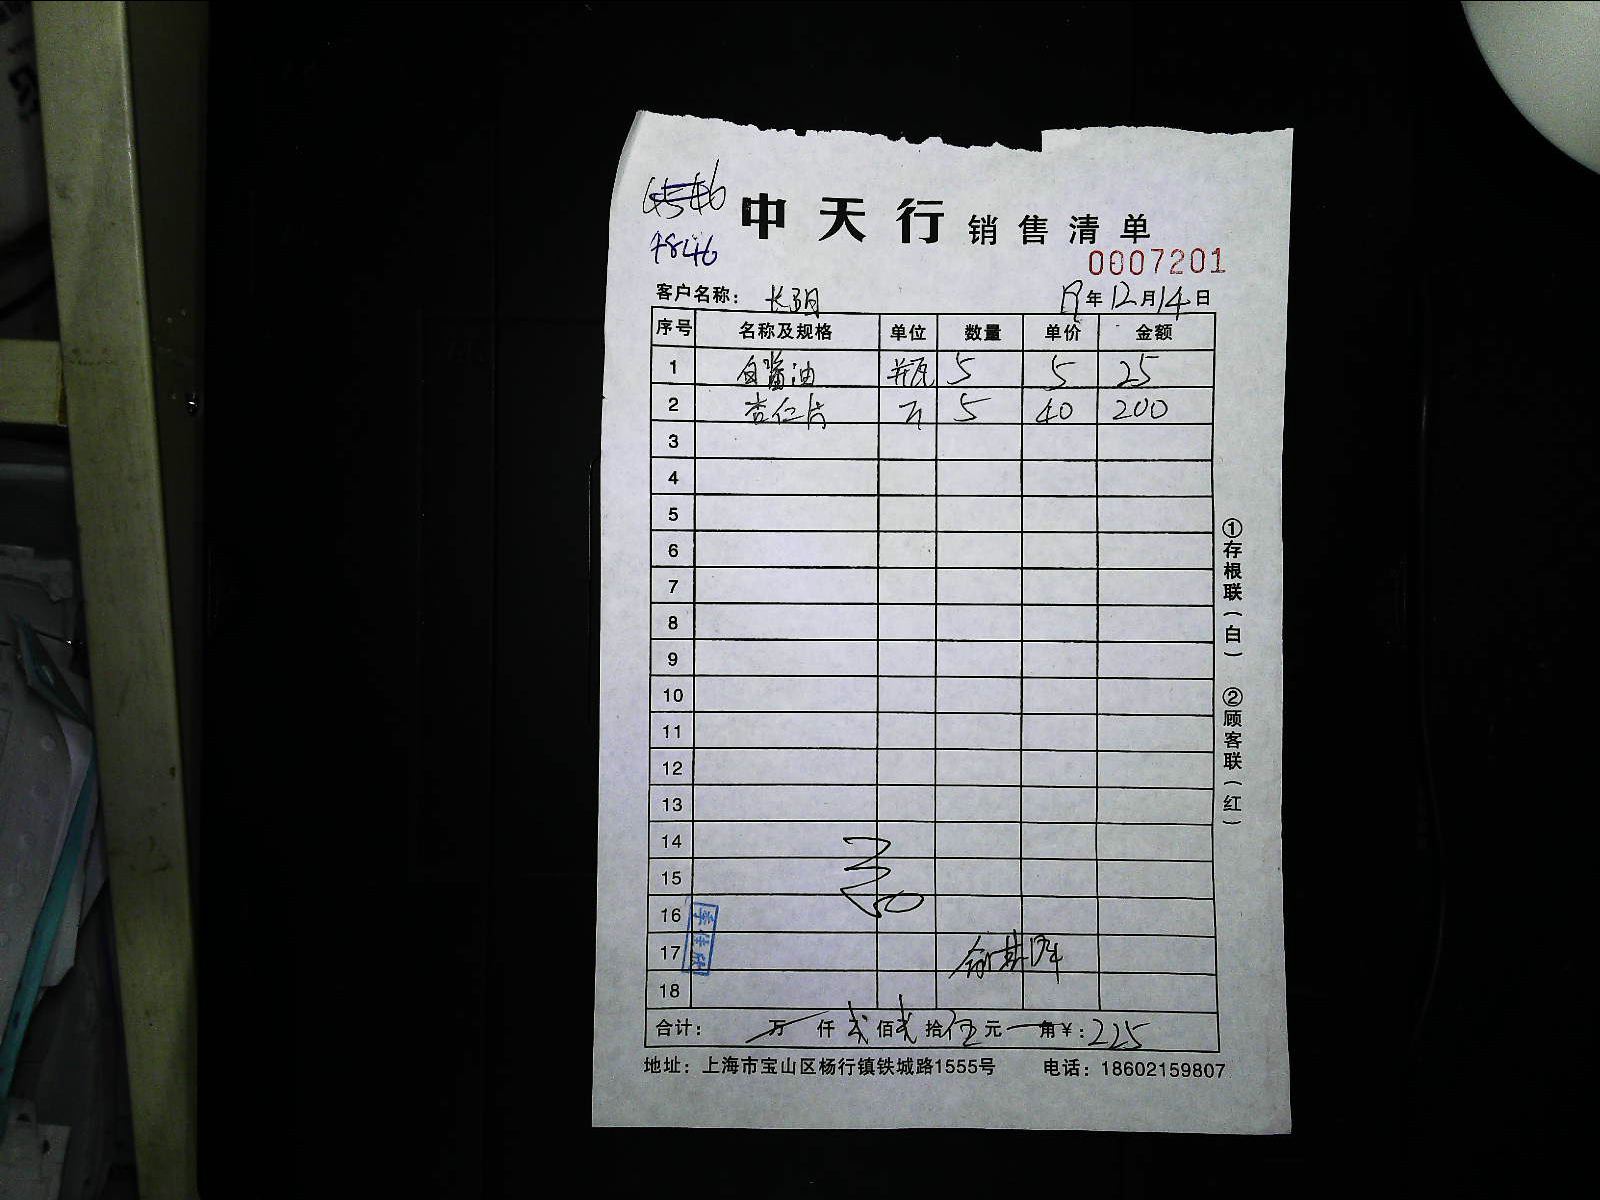 4546
4846
中天行 销售清单
0007201
客户名称: 长阴 19年12月14日
序号 名称及规格 单位 数量 单价 金额
1 白酱油 瓶 5 5 25
2 杏仁片 5 40 200
3
4
5
6
7
8
9
10
11
12
13
14
15
16
17
18
李佳欣
合计: 万 仟 贰 佰 贰 拾 伍 元 角 ¥: 225
地址: 上海市宝山区杨行镇铁城路1555号 电话: 18602159807
①存根联(白) ②顾客联(红)